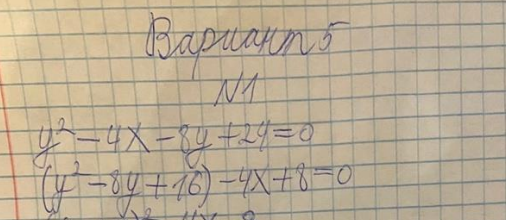 Вариант 5
N1
y² - 4x - 8y + 24 = 0
(y² - 8y + 16) - 4x + 8 = 0